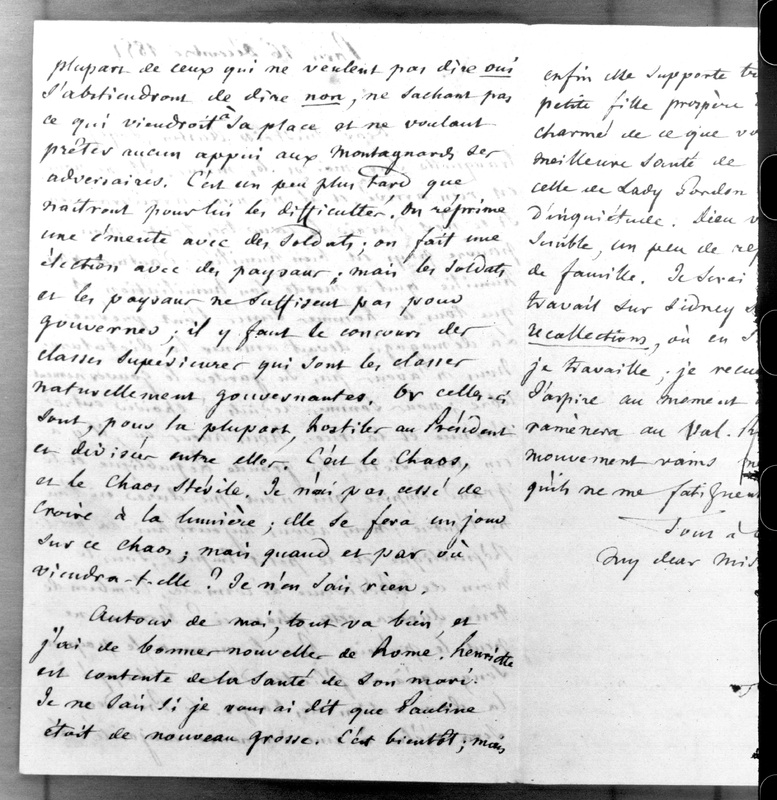 plupart de ceux qui ne veulent pas dire oui
s'abstiendront de dire non, ne sachant pas
ce qui viendroit à sa place et ne voulant
prêter aucun appui aux Montagnards ses
adversaires. C'est un peu plus tard que
naîtront pour lui les difficultés. On réprime
une émeute avec des soldats; on fait une
élection avec des paysans; mais les soldats
et les paysans ne suffisent pas pour
gouverner; il y faut le concours des
classes supérieures qui sont les classes
naturellement gouvernantes. Or celles-ci
sont, pour la plupart, hostiles au Président
et divisées entre elles. C'est le chaos,
et le chaos stérile. Je n'ai pas cessé de
croire à la lumière; elle se fera un jour
sur ce chaos; mais quand et par où
viendra-t-elle? Je n'en sais rien.
Autour de moi, tout va bien, et
j'ai de bonnes nouvelles de Rome. Henriette
est contente de la santé de son mari.
Je ne sais si je vous ai dit que Pauline
était de nouveau grosse. C'est bientôt; mais
enfin elle supporte
petite fille prospère
charmé de ce que
meilleure santé de
celle de Lady Gordon
d'inquiétude. Dieu
semble, un peu de
de famille. Je serai
travail sur Sidney
recollections, où en
je travaille; je
J'aspire au moment
ramènera au Val.
mouvement vains
qu'ils ne me fatiguent
Tout à
my dear